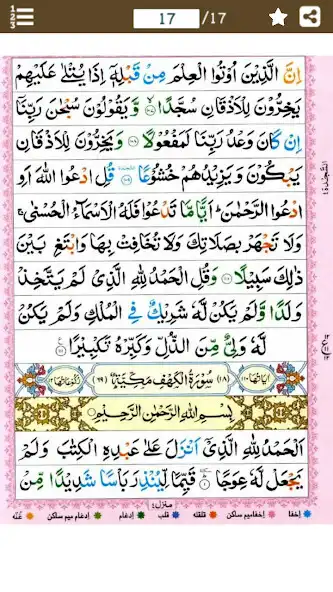 17 /17
اِنَّ الَّذِيْنَ اُوْتُوا الْعِلْمَ مِنْ قَبْلِهٖۤ اِذَا يُتْلٰى عَلَيْهِمْ
يَخِرُّوْنَ لِلْاَذْقَانِ سُجَّدًا ۙ‏﴿۱۰۷﴾ وَّيَقُوْلُوْنَ سُبْحٰنَ رَبِّنَاۤ
اِنْ كَانَ وَعْدُ رَبِّنَا لَمَفْعُوْلًا ﴿۱۰۸﴾ وَيَخِرُّوْنَ لِلْاَذْقَانِ
يَبْكُوْنَ وَيَزِيْدُهُمْ خُشُوْعًا ﴿۱۰۹﴾ قُلِ ادْعُوا اللّٰهَ اَوِ
ادْعُوا الرَّحْمٰنَ ؕ اَيًّا مَّا تَدْعُوْا فَلَهُ الْاَسْمَآءُ الْحُسْنٰى ۚ
وَلَا تَجْهَرْ بِصَلَاتِكَ وَلَا تُخَافِتْ بِهَا وَابْتَغِ بَيْنَ
ذٰلِكَ سَبِيْلًا ﴿۱۱۰﴾ وَقُلِ الْحَمْدُ لِلّٰهِ الَّذِيْ لَمْ يَتَّخِذْ
وَلَدًا وَّلَمْ يَكُنْ لَّهٗ شَرِيْكٌ فِي الْمُلْكِ وَلَمْ يَكُنْ
لَّهٗ وَلِيٌّ مِّنَ الذُّلِّ وَكَبِّرْهُ تَكْبِيْرًا ﴿۱۱۱﴾
اٰيَاتُهَا ١١٠ (١٨) سُوْرَةُ الْكَهْفِ مَكِّيَّةٌ (٦٩) رُكُوْعَاتُهَا ١٢
بِسْمِ اللّٰهِ الرَّحْمٰنِ الرَّحِيْمِ
اَلْحَمْدُ لِلّٰهِ الَّذِيْۤ اَنْزَلَ عَلٰى عَبْدِهِ الْكِتٰبَ وَلَمْ
يَجْعَلْ لَّهٗ عِوَجًا ﴿۱﴾ قَيِّمًا لِّيُنْذِرَ بَاْسًا شَدِيْدًا مِّنْ
السَّجْدَة ٤
منزل ٤
اخفا اخفامیم ساکن قلقله قلب ادغام ادغام میم ساکن غُنّه